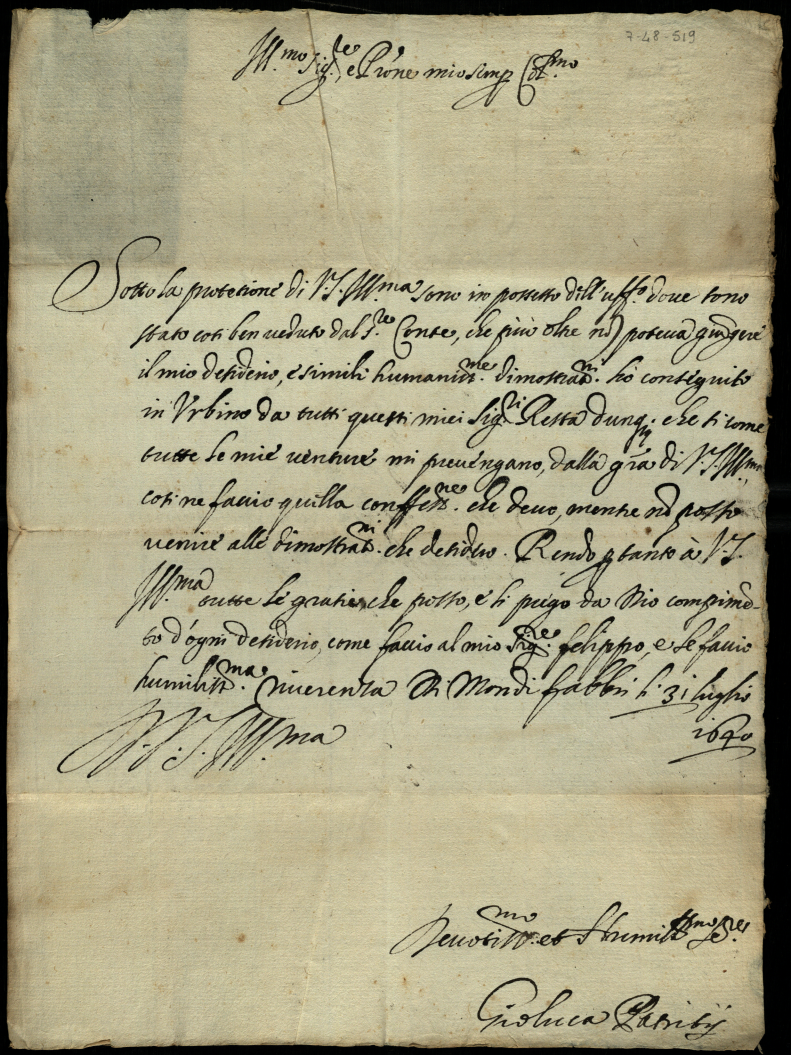 7-48-519
Ill.mo Sig.re e P'rone mio semp Col.mo
Sotto la protetione di V.S. Ill.ma sono in possesso dell'uff.o dove sono
stato così ben veduto dal S.re Conte, che più oltre nō poteva giūgere
il mio desiderio, e simili humaniss.me dimostrat.ni ho conseguito
in Urbino da tutti questi miei Sig.ri Resta dunq. che si come
tutte le mie venture mi prevengano, dalla gr̃a di V.S. Ill.ma,
così ne faccio quella confess.ne che devo, mentre nō posso
venire alle dimostrat.ni che desidero. Rendo p tanto à V.S.
Ill.ma tutte le gratie che posso, e li prego da Dio compimē-
to d'ogni desiderio, come faccio al mio Sig.re felippo, e le faccio
humiliss.ma riverenza Di Mondi fabbri li 31 luglio
1640
D. V. S. Ill.ma
Devotiss.mo et Humiliss.mo Se.re
Gioluca Patritij